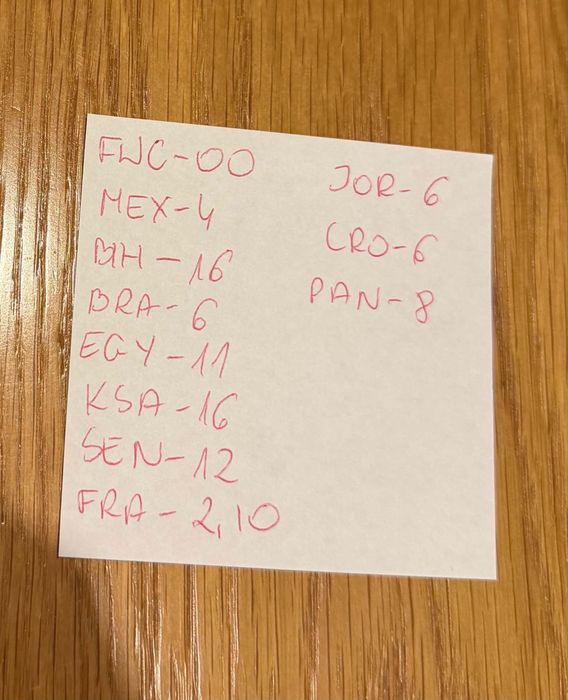 FWC-00
MEX-4
BIH-16
BRA-6
EGY-11
KSA-16
SEN-12
FRA-2,10
JOR-6
CRO-6
PAN-8